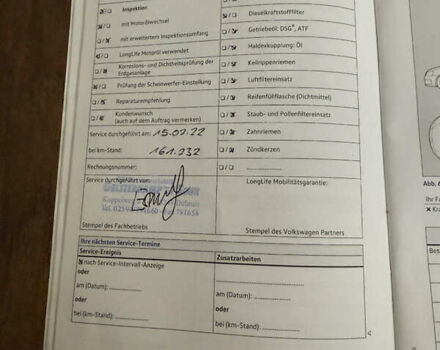 Inspektion
mit Motorölwechsel
mit erweitertem Inspektionsumfang
LongLife Motoröl verwendet
Korrosions- und Dichtheitsprüfung der
Erdgasanlage
Prüfung der Scheinwerfer-Einstellung
Reparaturempfehlung
Kundenwunsch
(auch auf dem Auftrag vermerken)
Service durchgeführt am: 15.02.22
bei km-Stand: 161.232
Rechnungsnummer:
Service durchgeführt von:
Stempel des Fachbetriebs
Dieselkraftstofffilter
Getriebeöl: DSG®, ATF
Haldexkupplung: Öl
Keilrippenriemen
Luftfiltereinsatz
Reifenfüllflasche (Dichtmittel)
Staub- und Pollenfiltereinsatz
Zahnriemen
Zündkerzen
LongLife Mobilitätsgarantie:
Stempel des Volkswagen Partners
Ihre nächsten Service-Termine
Service-Ereignis
nach Service-Intervall-Anzeige
oder
am (Datum):
oder
bei (km-Stand):
Zusatzarbeiten
am (Datum):
oder
bei (km-Stand):